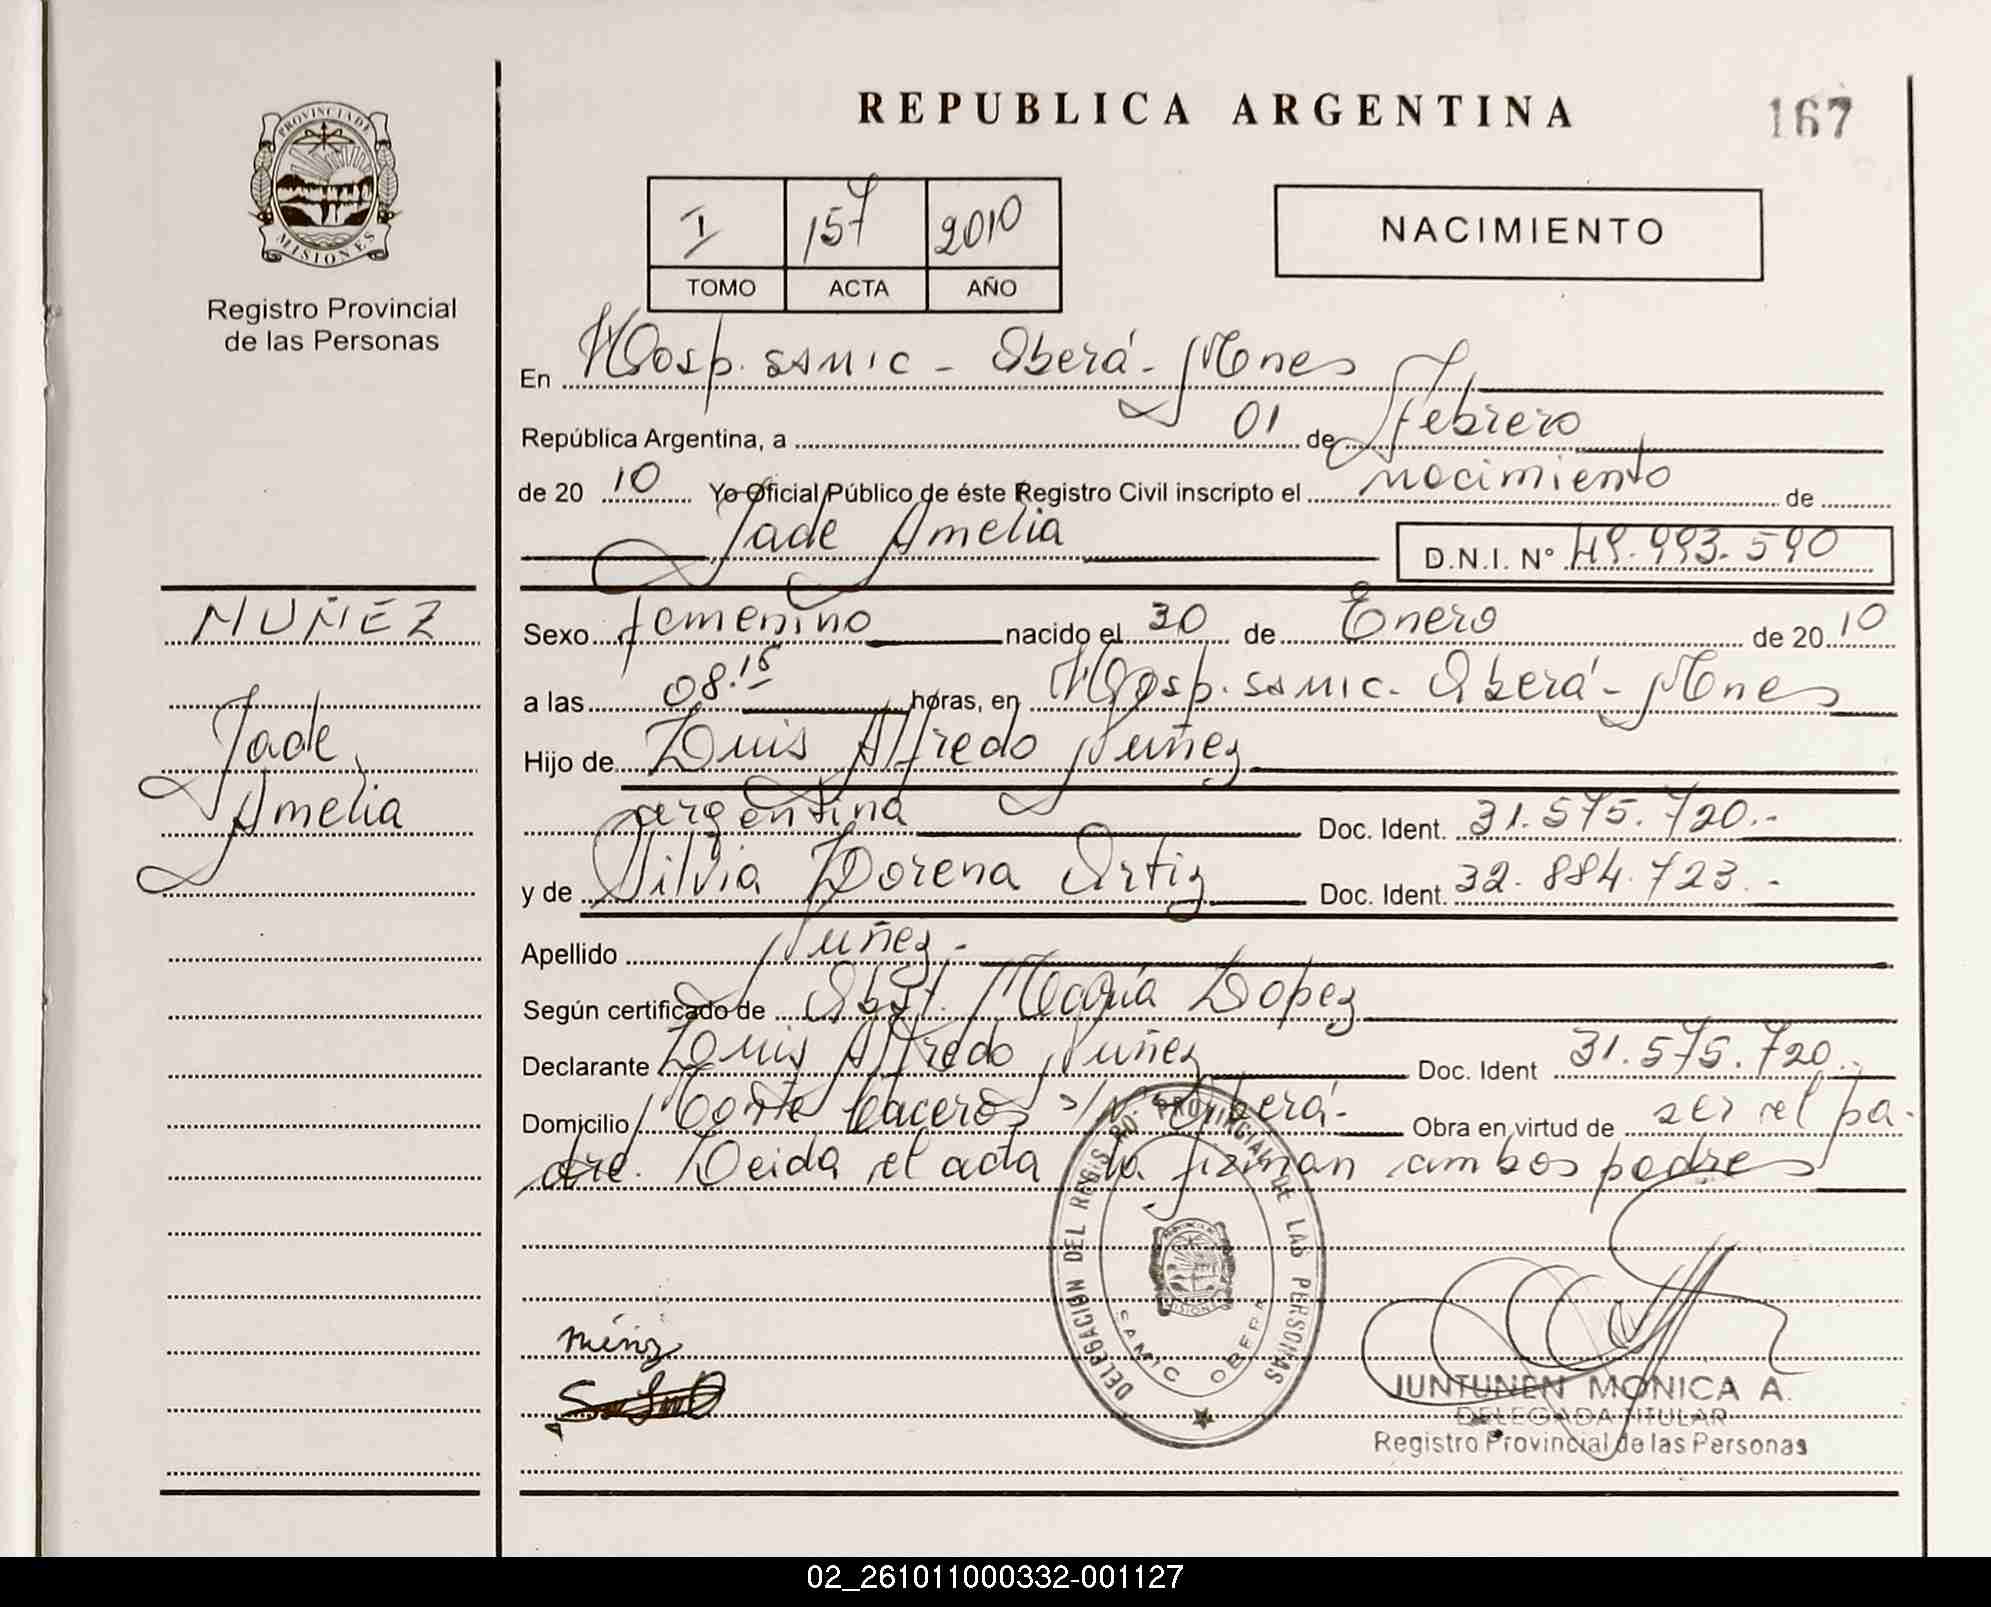 PROVINCIA DE
MISIONES
Registro Provincial
de las Personas
NUÑEZ
Jade
Amelia
REPUBLICA ARGENTINA
167
I 157 2010
TOMO ACTA AÑO
NACIMIENTO
En Hosp. SAMIC - Oberá - Mnes
República Argentina, a 01 de febrero
de 20 10 Yo Oficial Público de éste Registro Civil inscripto el nacimiento de
Jade Amelia D.N.I. Nº 49.993.590
Sexo femenino nacido el 30 de Enero de 20 10
a las 08.15 horas, en Hosp. SAMIC - Oberá - Mnes
Hijo de Luis Alfredo Nuñez
argentina Doc. Ident. 31.575.720.-
y de Silvia Lorena Ortiz Doc. Ident. 32.884.723.-
Apellido Nuñez.-
Según certificado de Obst. María Lopez
Declarante Luis Alfredo Nuñez Doc. Ident 31.575.720.-
Domicilio Monte Caceros s/Nº Oberá - Obra en virtud de ser el pa-
dre. Leida el acta la firman ambos padres
DELEGACION DEL REGISTRO PROVINCIAL DE LAS PERSONAS
MISIONES
SAMIC OBERA
JUNTUNEN MONICA A.
DELEGADA TITULAR
Registro Provincial de las Personas
02_261011000332-001127